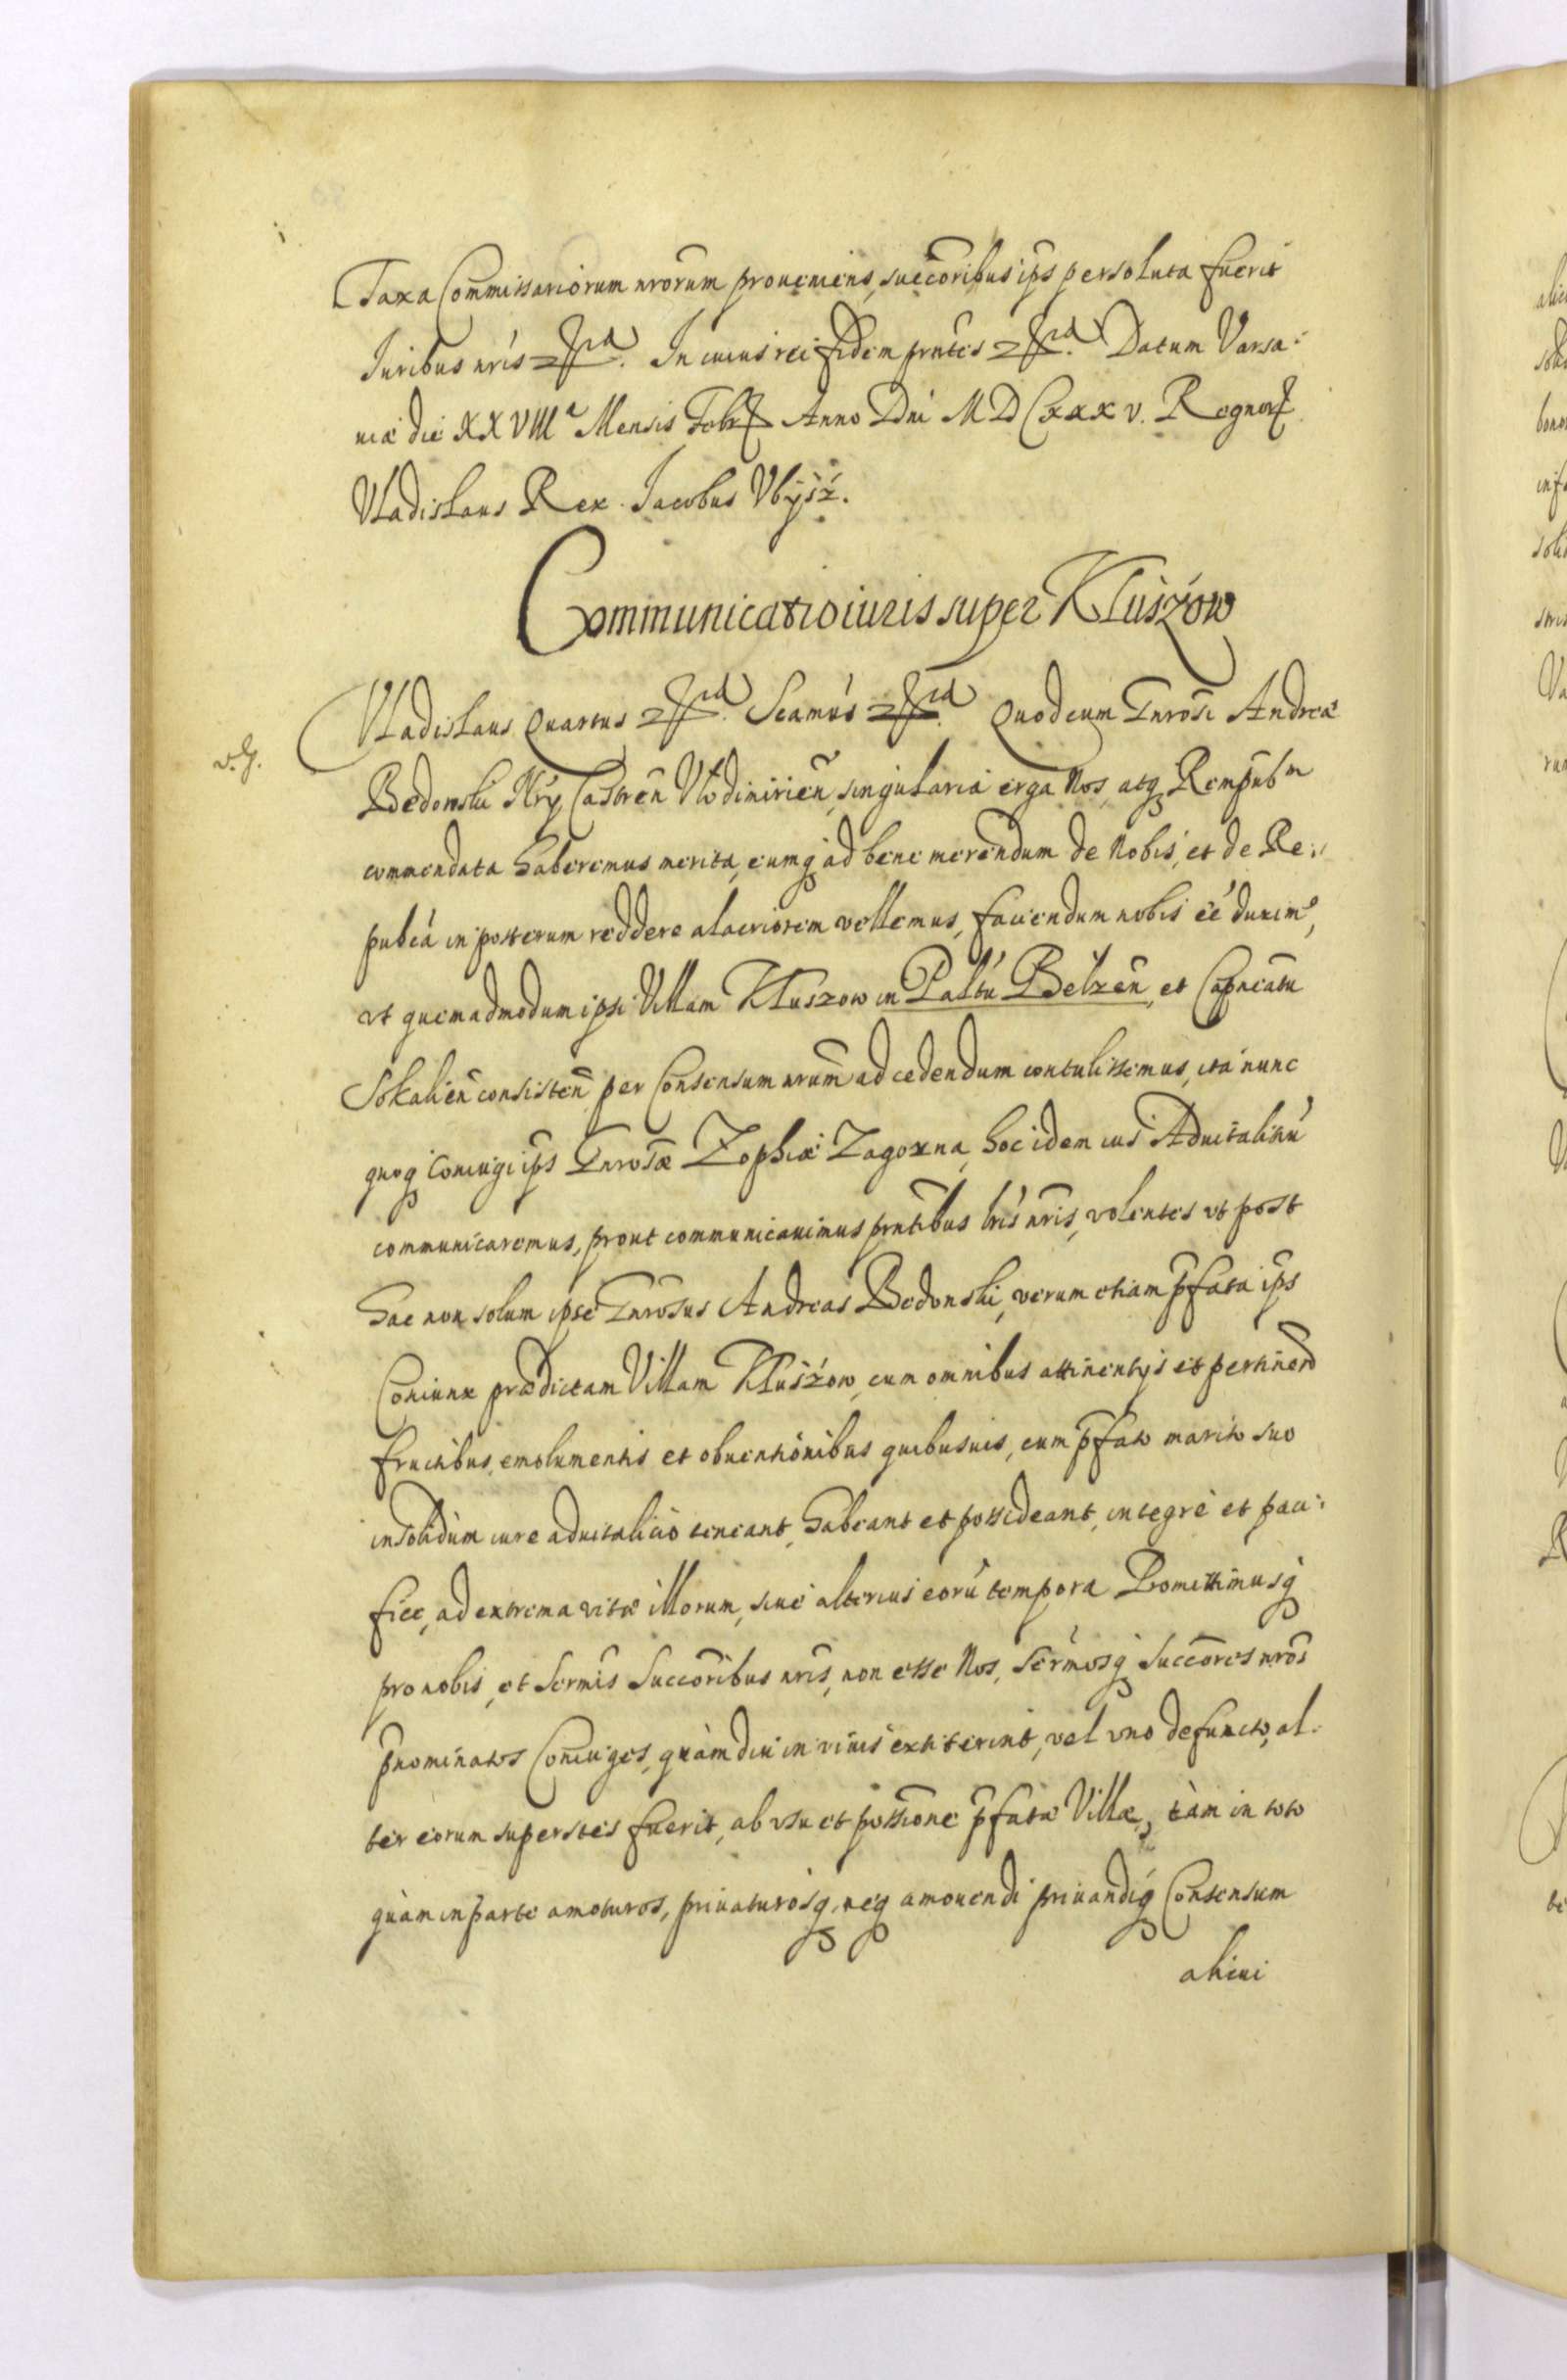 Taxa Commissariorum nrorum proueniens, succoribus ips persoluta fuerit
Iuribus nris etc. In cuius rei fidem prntes etc. Datum Varsa:
uiæ die XXVIIIa Mensis Febr Anno Dni MDCXXXV. Regnor
Vladislaus Rex. Jacobus Vbysz.
Communicatio iuris super Kluszow
v. g.
Vladislaus Quartus etc. Seamus etc. Quod cum Gnrosi Andreæ
Bedonski Nry Castren Wlodimirien, singularia erga Nos, atq Rempubm
commendata haberemus merita, eumq ad bene merendum de Nobis, et de Re:
pubca in posterum reddere alacriorem vellemus, faciendum nobis eé duxim9,
vt quemadmodum ipsi Villam Kluszow in Paltu Belzen, et Capncatu
Sokalien consisten per Consensum nrum ad cedendum contulissemus, ita nunc
quoq Coniugi ips Gnrosæ Zophiæ Zagorxna, hoc idem ius Aduitalitiu
communicaremus, prout communicauimus prntibus lris nris, volentes vt post
hac non solum ipse Gnrosus Andreas Bedonski, verum etiam pfata ips
Coniunx prædictam Villam Kluszow, cum omnibus attinentijs et pertinend
fructibus, emolumentis et obuentionibus quibusuis, cum pfato marito suo
insolidùm iure aduitalitio teneant, habeant et possideant, integrè et paci:
ficè, ad extrema vitæ illorum, siue alterius eorū tempora Promittimusq
pro nobis, et Sermis Succoribus nris, non esse Nos, Sermosq Succores nros
pnominatos Coniuges, quàmdiu in viuis extiterint, vel vno defuncto, al:
ter eorum superstes fuerit, ab vsu et possione pfatæ Villæ, tàm in toto
quàm in parte amoturos, priuaturosq, neq amouendi priuandiq Consensum
alicui